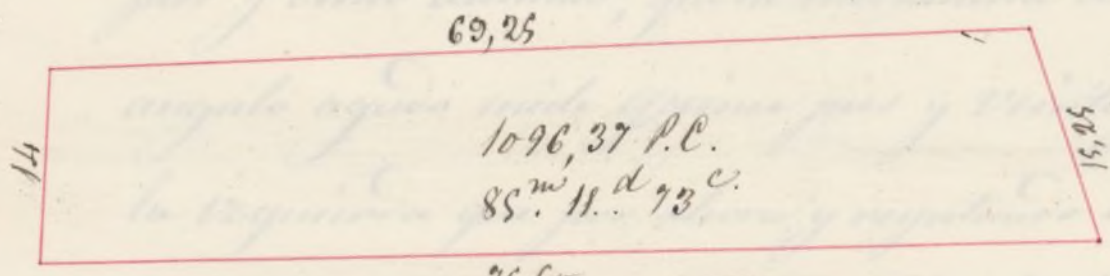 69,25
14
1096,37 P.C.
85.m 11.d 73c.
15,25